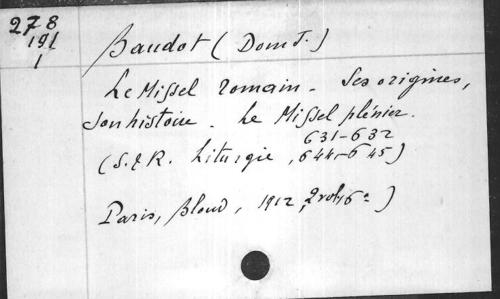 278
191
1
Baudot (Dom J.)
Le Missel romain - Ses origines,
son histoire. Le Missel plénier.
631-632
(S. & R. Liturgie, 644-645)
Paris, Bloud, 1912, 2 vol. 16°)